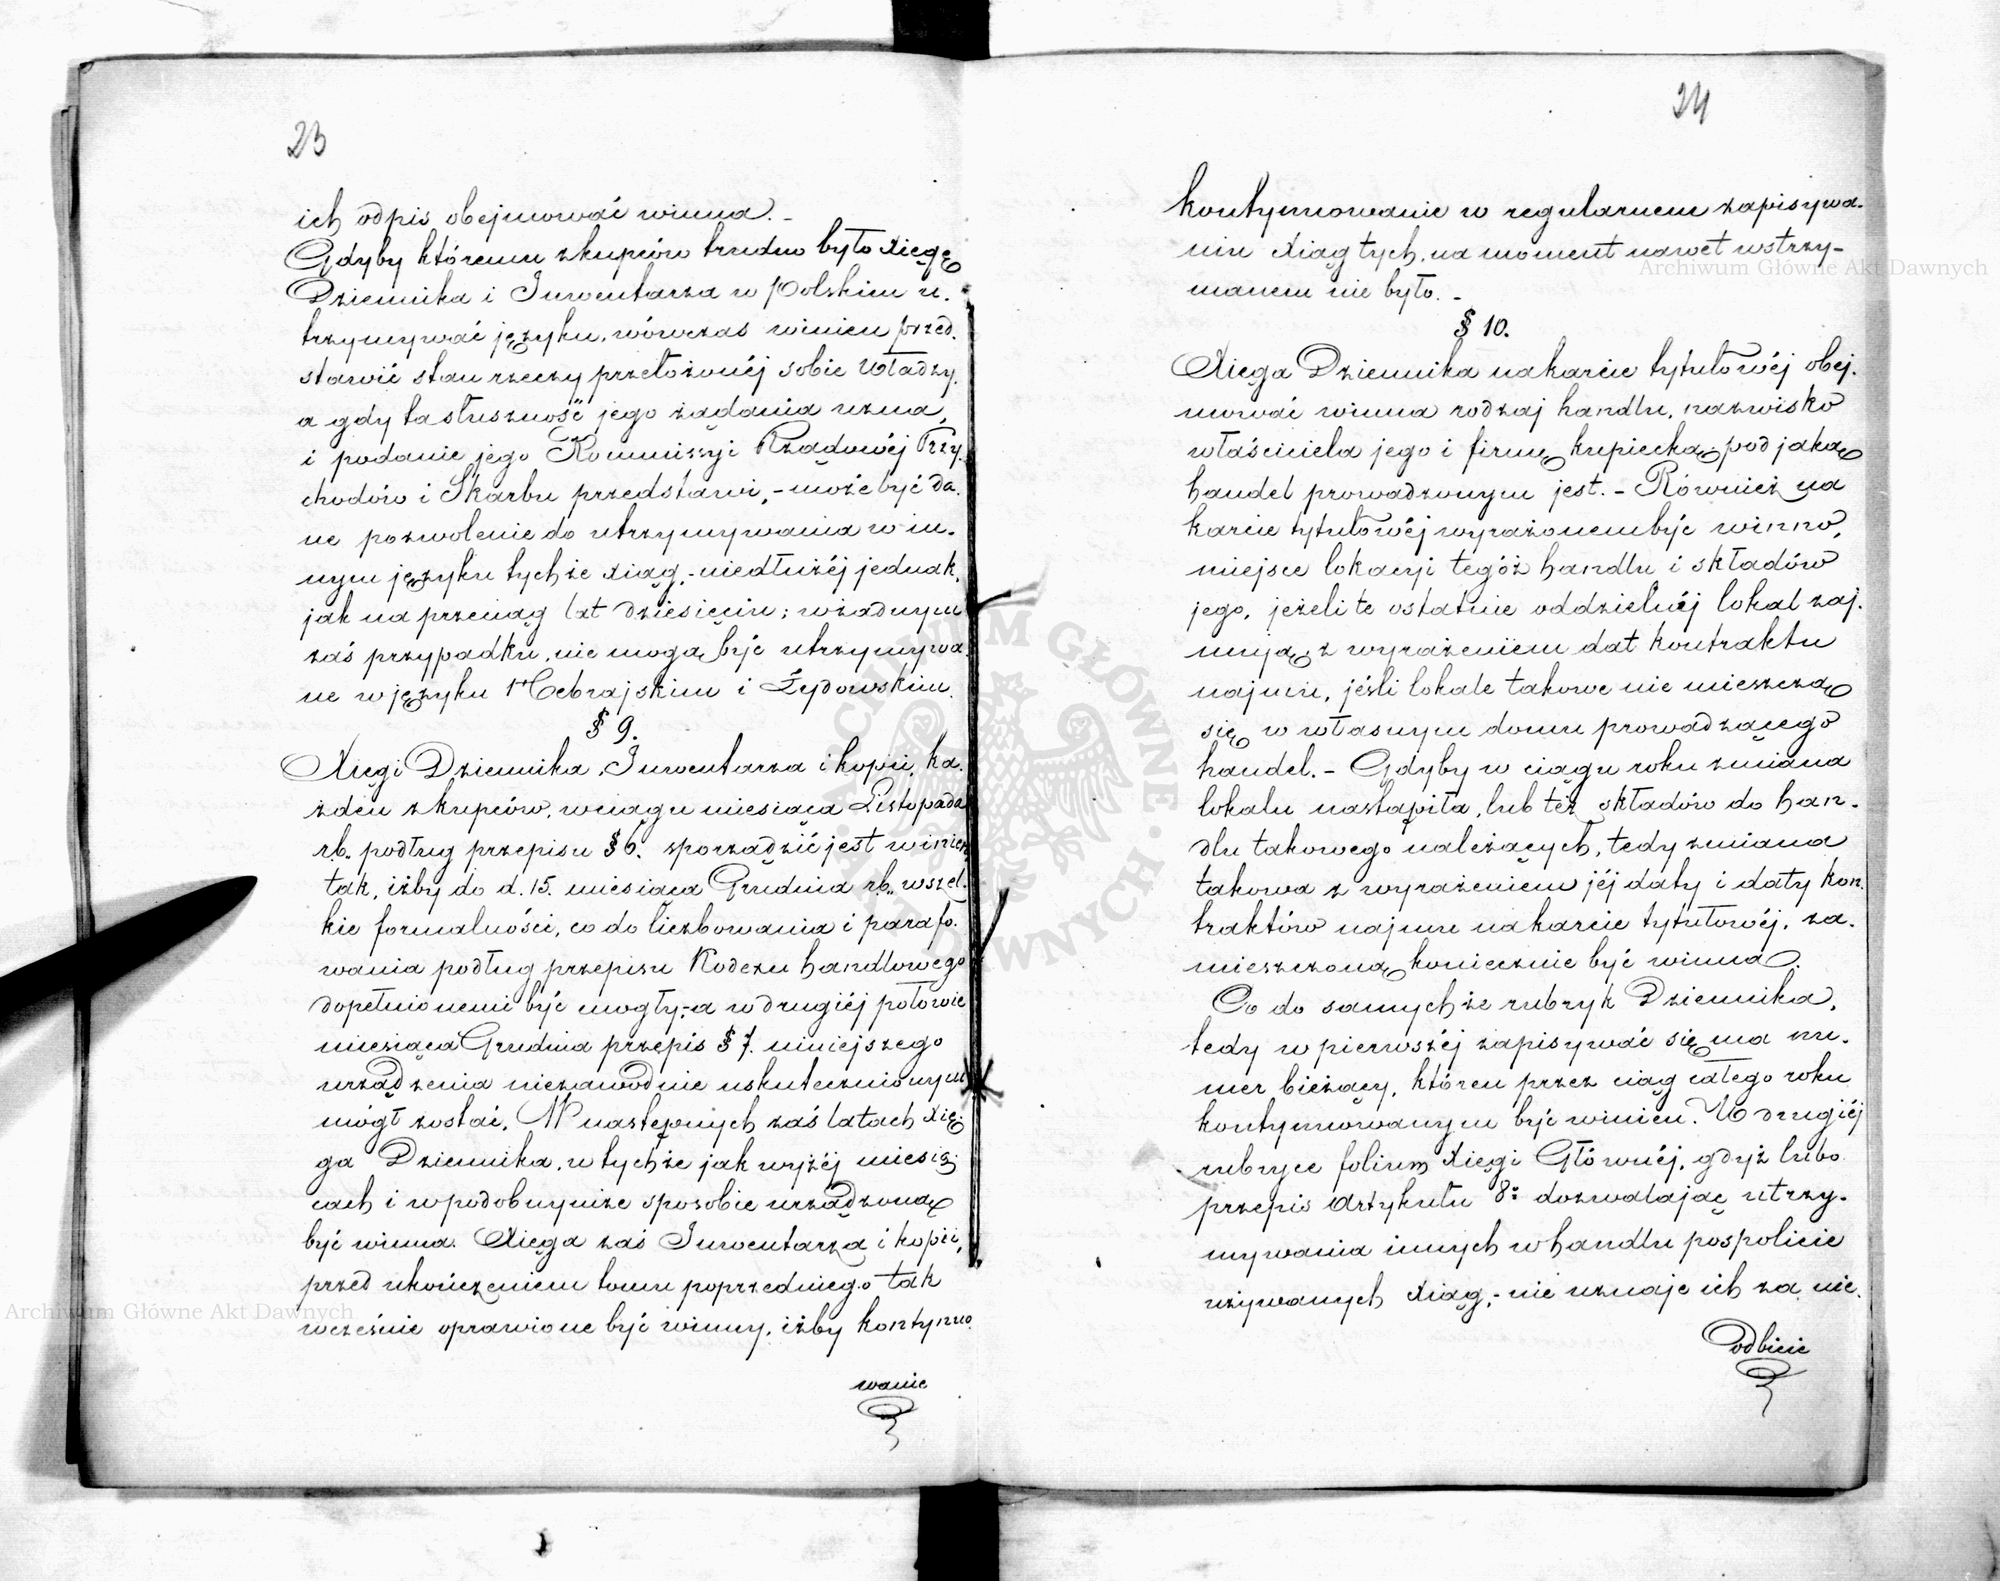 23
ich odpis obejmować winna. –
Gdyby któremu z kupców trudno było Xięgę
Dziennika i Inwentarza w Polskim u.
trzymywać języku, wówczas winien przed.
stawić stan rzeczy przełożonéj sobie Władzy,
a gdy ta słuszność jego żądania uzna,
i podanie jego Kommissyi Rządowéj Przy.
chodów i Skarbu przedstawi, – może być da.
ne pozwolenie do utrzymywania w in.
nym języku tychże xiąg, – niedłużéj jednak,
jak na przeciąg lat dziesięciu; w żadnym
zaś przypadku, nie mogą być utrzymywa.
ne w języku Hebrajskim i Żydowskim.
§ 9.
Xięgi Dziennika, Inwentarza i kopii, ka.
żden z kupców, w ciągu miesiąca Listopada
rb. podług przepisu § 6. sporządzić jest winien
tak, iżby do d. 15. miesiąca Grudnia rb. wszel.
kie formalności, co do liczbowania i parafo.
wania podług przepisu Kodexu handlowego
dopełnionemi być mogły, – a w drugiéj połowie
miesiąca Grudnia przepis § 7. niniejszego
urządzenia niezawodnie uskutecznionym
mógł zostać. W następnych zaś latach Xię
ga Dziennika, w tychże jak wyżéj miesią.
cach i w podobnymże sposobie urządzoną
być winna. Xięga zaś Inwentarza i kopii,
przed ukończeniem tomu poprzedniego tak
wcześnie oprawione być winny, iżby kontynuo.
wanie
24
kontynuowanie w regularnem zapisywa.
niu Xiąg tych, na moment nawet wstrzy-
manem nie było. –
§ 10.
Xięga Dziennika na karcie tytułowéj obej.
mować winna rodzaj handlu, nazwisko
właściciela jego i firmę kupiecką pod jaką
handel prowadzonym jest. – Również na
karcie tytułowéj wyrażonem być winno,
miejsce lokacyi tegóż handlu i składów
jego, jeżeli te ostatnie oddzielnéj lokal zaj.
mują, z wyrażeniem dat kontraktu
najmu, jeśli lokale takowe nie mieszczą
się w własnym domu prowadzącego
handel. – Gdyby w ciągu roku zmiana
lokalu nastąpiła, lub też składów do han.
dlu takowego należących, tedy zmiana
takowa z wyrażeniem jéj daty i daty kon.
traktów najmu na karcie tytułowéj, za.
mieszczoną koniecznie być winna.
Co do samychże rubryk Dziennika,
tedy w pierwszéj zapisywać się ma nu.
mer bieżący, któren przez ciąg całego roku
kontynuowanym być winien. W drugiéj
rubryce folium Xięgi Głównéj, gdyż lubo
przepis Artykułu 8: dozwalając utrzy.
mywania innych w handlu pospolicie
używanych Xiąg, – nie uznaje ich za nie.
odbicie
ARCHIWUM GŁÓWNE AKT DAWNYCH
Archiwum Główne Akt Dawnych
Archiwum Główne Akt Dawnych